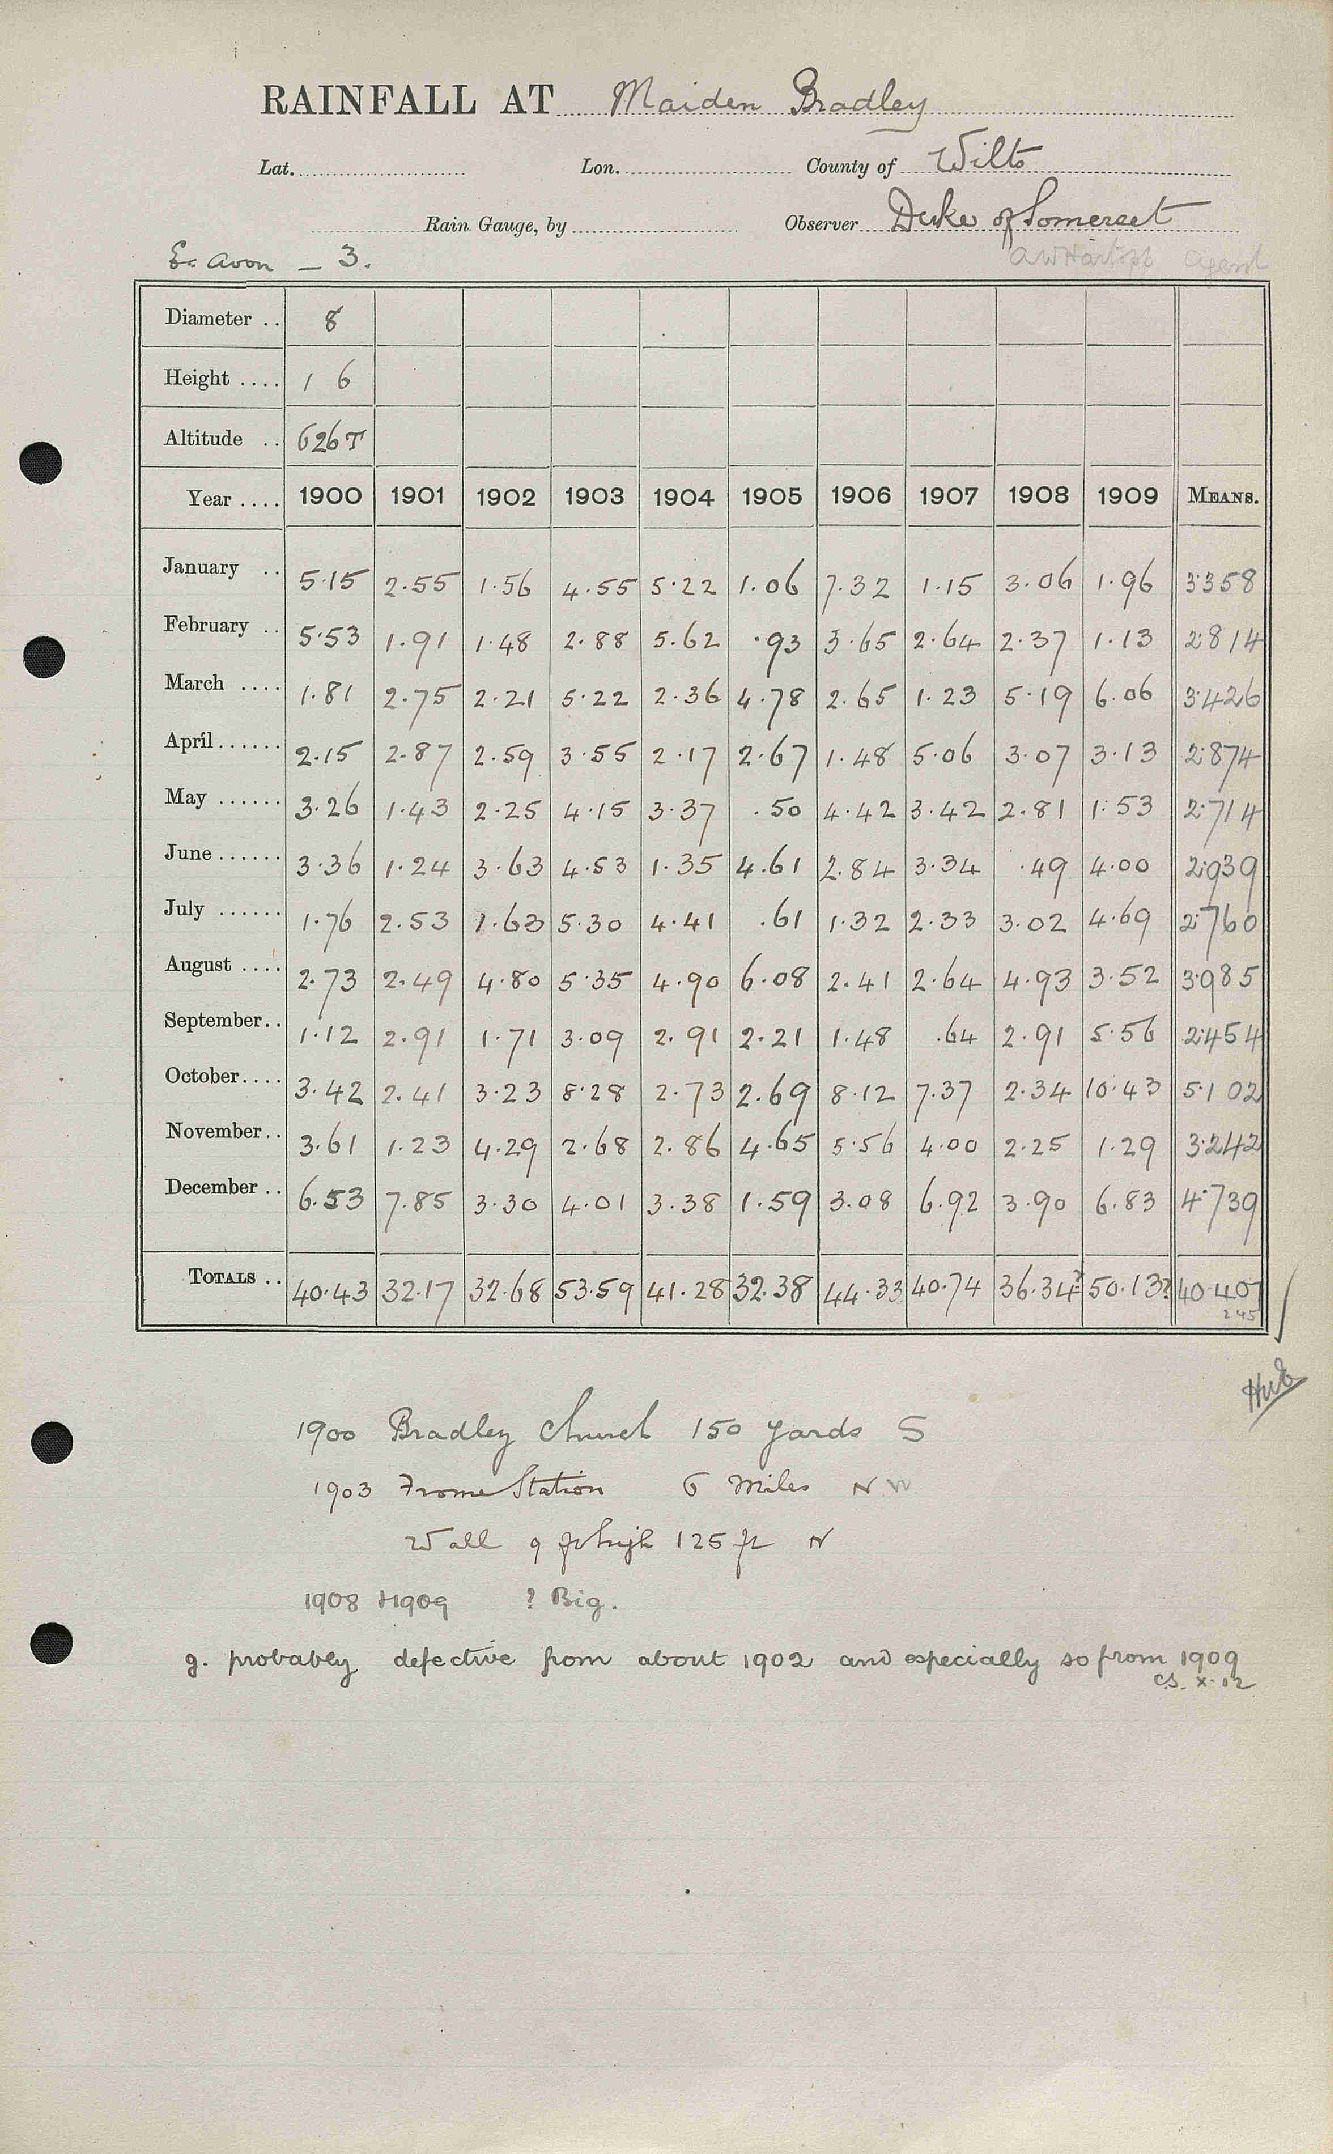 RAINFALL AT Maiden Bradley
Lat. Lon. County of Wilts
Rain Gauge, by Observer Duke of Somerset
Avon – 3. Agent
Diameter .. 8
Height .... 1 6
Altitude .. 626T
Year .... 1900 1901 1902 1903 1904 1905 1906 1907 1908 1909 MEANS.
January .. 5.15 2.55 1.56 4.55 5.22 1.06 7.32 1.15 3.06 1.96 3.358
February .. 5.53 1.91 1.48 2.88 5.62 .93 3.65 2.64 2.37 1.13 2.814
March .... 1.81 2.75 2.21 5.22 2.36 4.78 2.65 1.23 5.19 6.06 3.426
April...... 2.15 2.87 2.59 3.55 2.17 2.67 1.48 5.06 3.07 3.13 2.874
May ...... 3.26 1.43 2.25 4.15 3.37 .50 4.42 3.42 2.81 1.53 2.714
June ...... 3.36 1.24 3.63 4.53 1.35 4.61 2.84 3.34 .49 4.00 2.939
July ...... 1.76 2.53 1.63 5.30 4.41 .61 1.32 2.33 3.02 4.69 2.760
August .... 2.73 2.49 4.80 5.35 4.90 6.08 2.41 2.64 4.93 3.52 3.985
September.. 1.12 2.91 1.71 3.09 2.91 2.21 1.48 .64 2.91 5.56 2.454
October.... 3.42 2.41 3.23 8.28 2.73 2.69 8.12 7.37 2.34 10.43 5.102
November.. 3.61 1.23 4.29 2.68 2.86 4.65 5.56 4.00 2.25 1.29 3.242
December .. 6.53 7.85 3.30 4.01 3.38 1.59 3.08 6.92 3.90 6.83 4.739
TOTALS .. 40.43 32.17 32.68 53.59 41.28 32.38 44.33 40.74 36.34? 50.13? 40.407
245
1900 Bradley Church 150 yards S
1903 Frome Station 6 Miles N W
Wall 9 ft high 125 ft N
1908 + 1909 ? Big.
g. probably defective from about 1902 and especially so from 1909